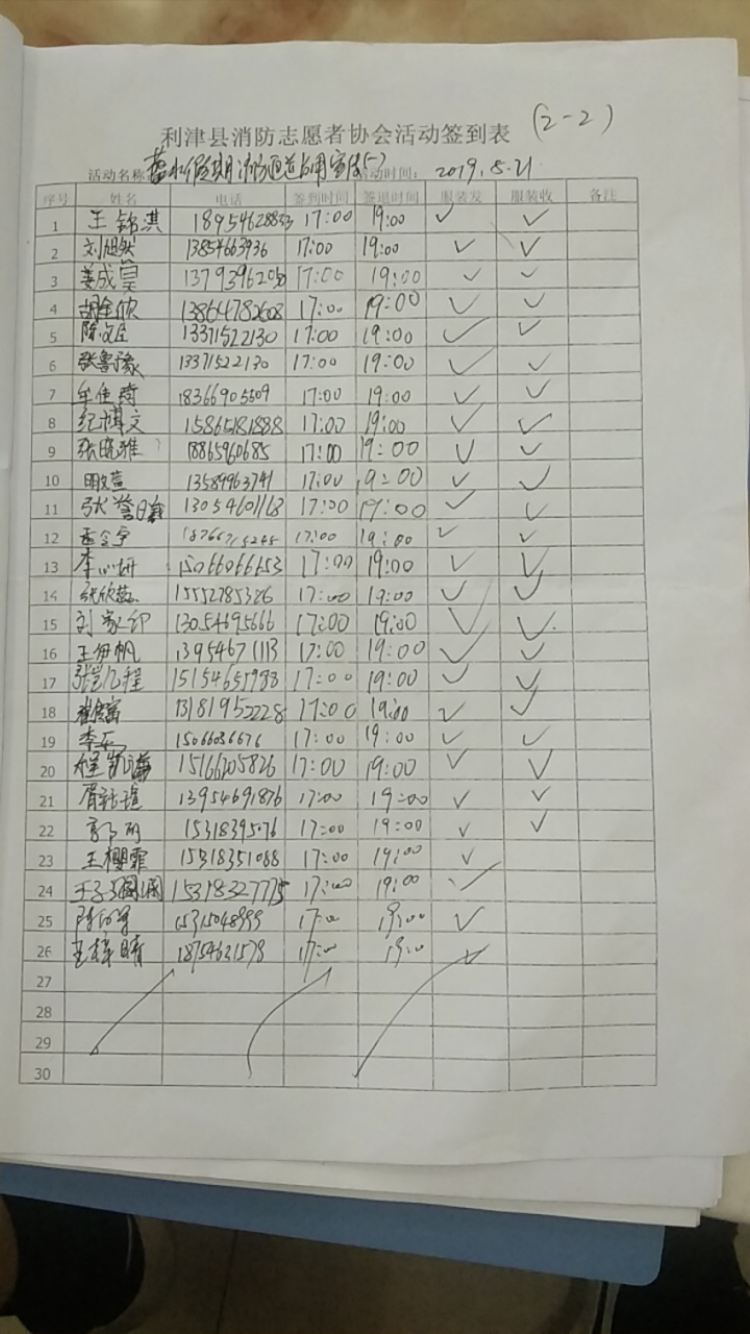 (2-2)
利津县消防志愿者协会活动签到表
活动名称 假期消防通道占用宣传(一) 活动时间: 2019.5.21
序号 姓名 电话 签到时间 签退时间 服装发 服装收 备注
1 王铭淇 18954628833 17:00 19:00 ✓ ✓
2 刘旭然 13854663936 17:00 19:00 ✓ ✓
3 姜成昊 13793962050 17:00 19:00 ✓ ✓
4 胡金欣 13864782608 17:00 19:00 ✓ ✓
5 陈 13371522130 17:00 19:00 ✓ ✓
6 张鲁豫 13371522130 17:00 19:00 ✓ ✓
7 牟佳琦 18366905509 17:00 19:00 ✓ ✓
8 纪博文 15865181888 17:00 19:00 ✓ ✓
9 张晓雅 18865960685 17:00 19:00 ✓ ✓
10 13589963741 17:00 19:00 ✓ ✓
11 张 13054601168 17:00 19:00 ✓ ✓
12 17:00 19:00 ✓ ✓
13 李心妍 15066066653 17:00 19:00 ✓ ✓
14 张欣 15552785326 17:00 19:00 ✓ ✓
15 刘家印 13054695666 17:00 19:00 ✓ ✓
16 王伊帆 13954671113 17:00 19:00 ✓ ✓
17 张 15154651988 17:00 19:00 ✓ ✓
18 13181952228 17:00 19:00 ✓ ✓
19 李 15066036676 17:00 19:00 ✓ ✓
20 程凯 15166205826 17:00 19:00 ✓ ✓
21 13954691876 17:00 19:00 ✓ ✓
22 15318395076 17:00 19:00 ✓ ✓
23 王樱霏 15318351088 17:00 19:00 ✓
24 王子 15318327775 17:00 19:00 ✓
25 陈 15315048999 17:00 19:00 ✓
26 王梓晴 18754621579 17:00 19:00 ✓
27
28
29
30